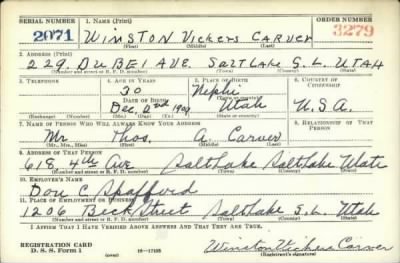 SERIAL NUMBER 1. NAME (Print) ORDER NUMBER
2071 WINSTON VICKERS CARVER 3279
(First) (Middle) (Last)
2. ADDRESS (Print)
229 DUBEI AVE. SALTLAKE S.L. UTAH
(Number and street or R. F. D. number) (Town) (County) (State)
3. TELEPHONE 4. AGE IN YEARS 5. PLACE OF BIRTH 6. COUNTRY OF CITIZENSHIP
30 Nephi
DATE OF BIRTH (Town or county)
Dec. 2nd 1909 Utah U.S.A.
(Exchange) (Number) (Mo.) (Day) (Yr.) (State or country)
7. NAME OF PERSON WHO WILL ALWAYS KNOW YOUR ADDRESS 8. RELATIONSHIP OF THAT PERSON
Mr. Thos. A. Carver
(Mr., Mrs., Miss) (First) (Middle) (Last)
9. ADDRESS OF THAT PERSON
618 4th Ave Salt Lake Salt Lake Utah
(Number and street or R. F. D. number) (Town) (County) (State)
10. EMPLOYER'S NAME
Don C Spafford
11. PLACE OF EMPLOYMENT OR BUSINESS
1206 Beck Street Salt Lake S.L. Utah
(Number and street or R. F. D. number) (Town) (County) (State)
I AFFIRM THAT I HAVE VERIFIED ABOVE ANSWERS AND THAT THEY ARE TRUE.
REGISTRATION CARD
D. S. S. Form 1 (over) 16—17105 Winston Vickers Carver
(Registrant's signature)